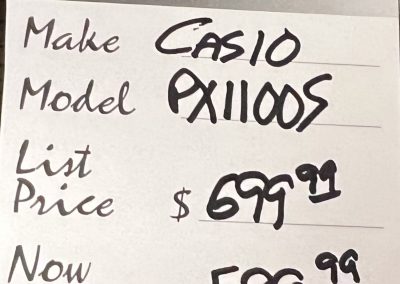 Make CASIO
Model PX1100S
List
Price $ 699 99
Now 599 99